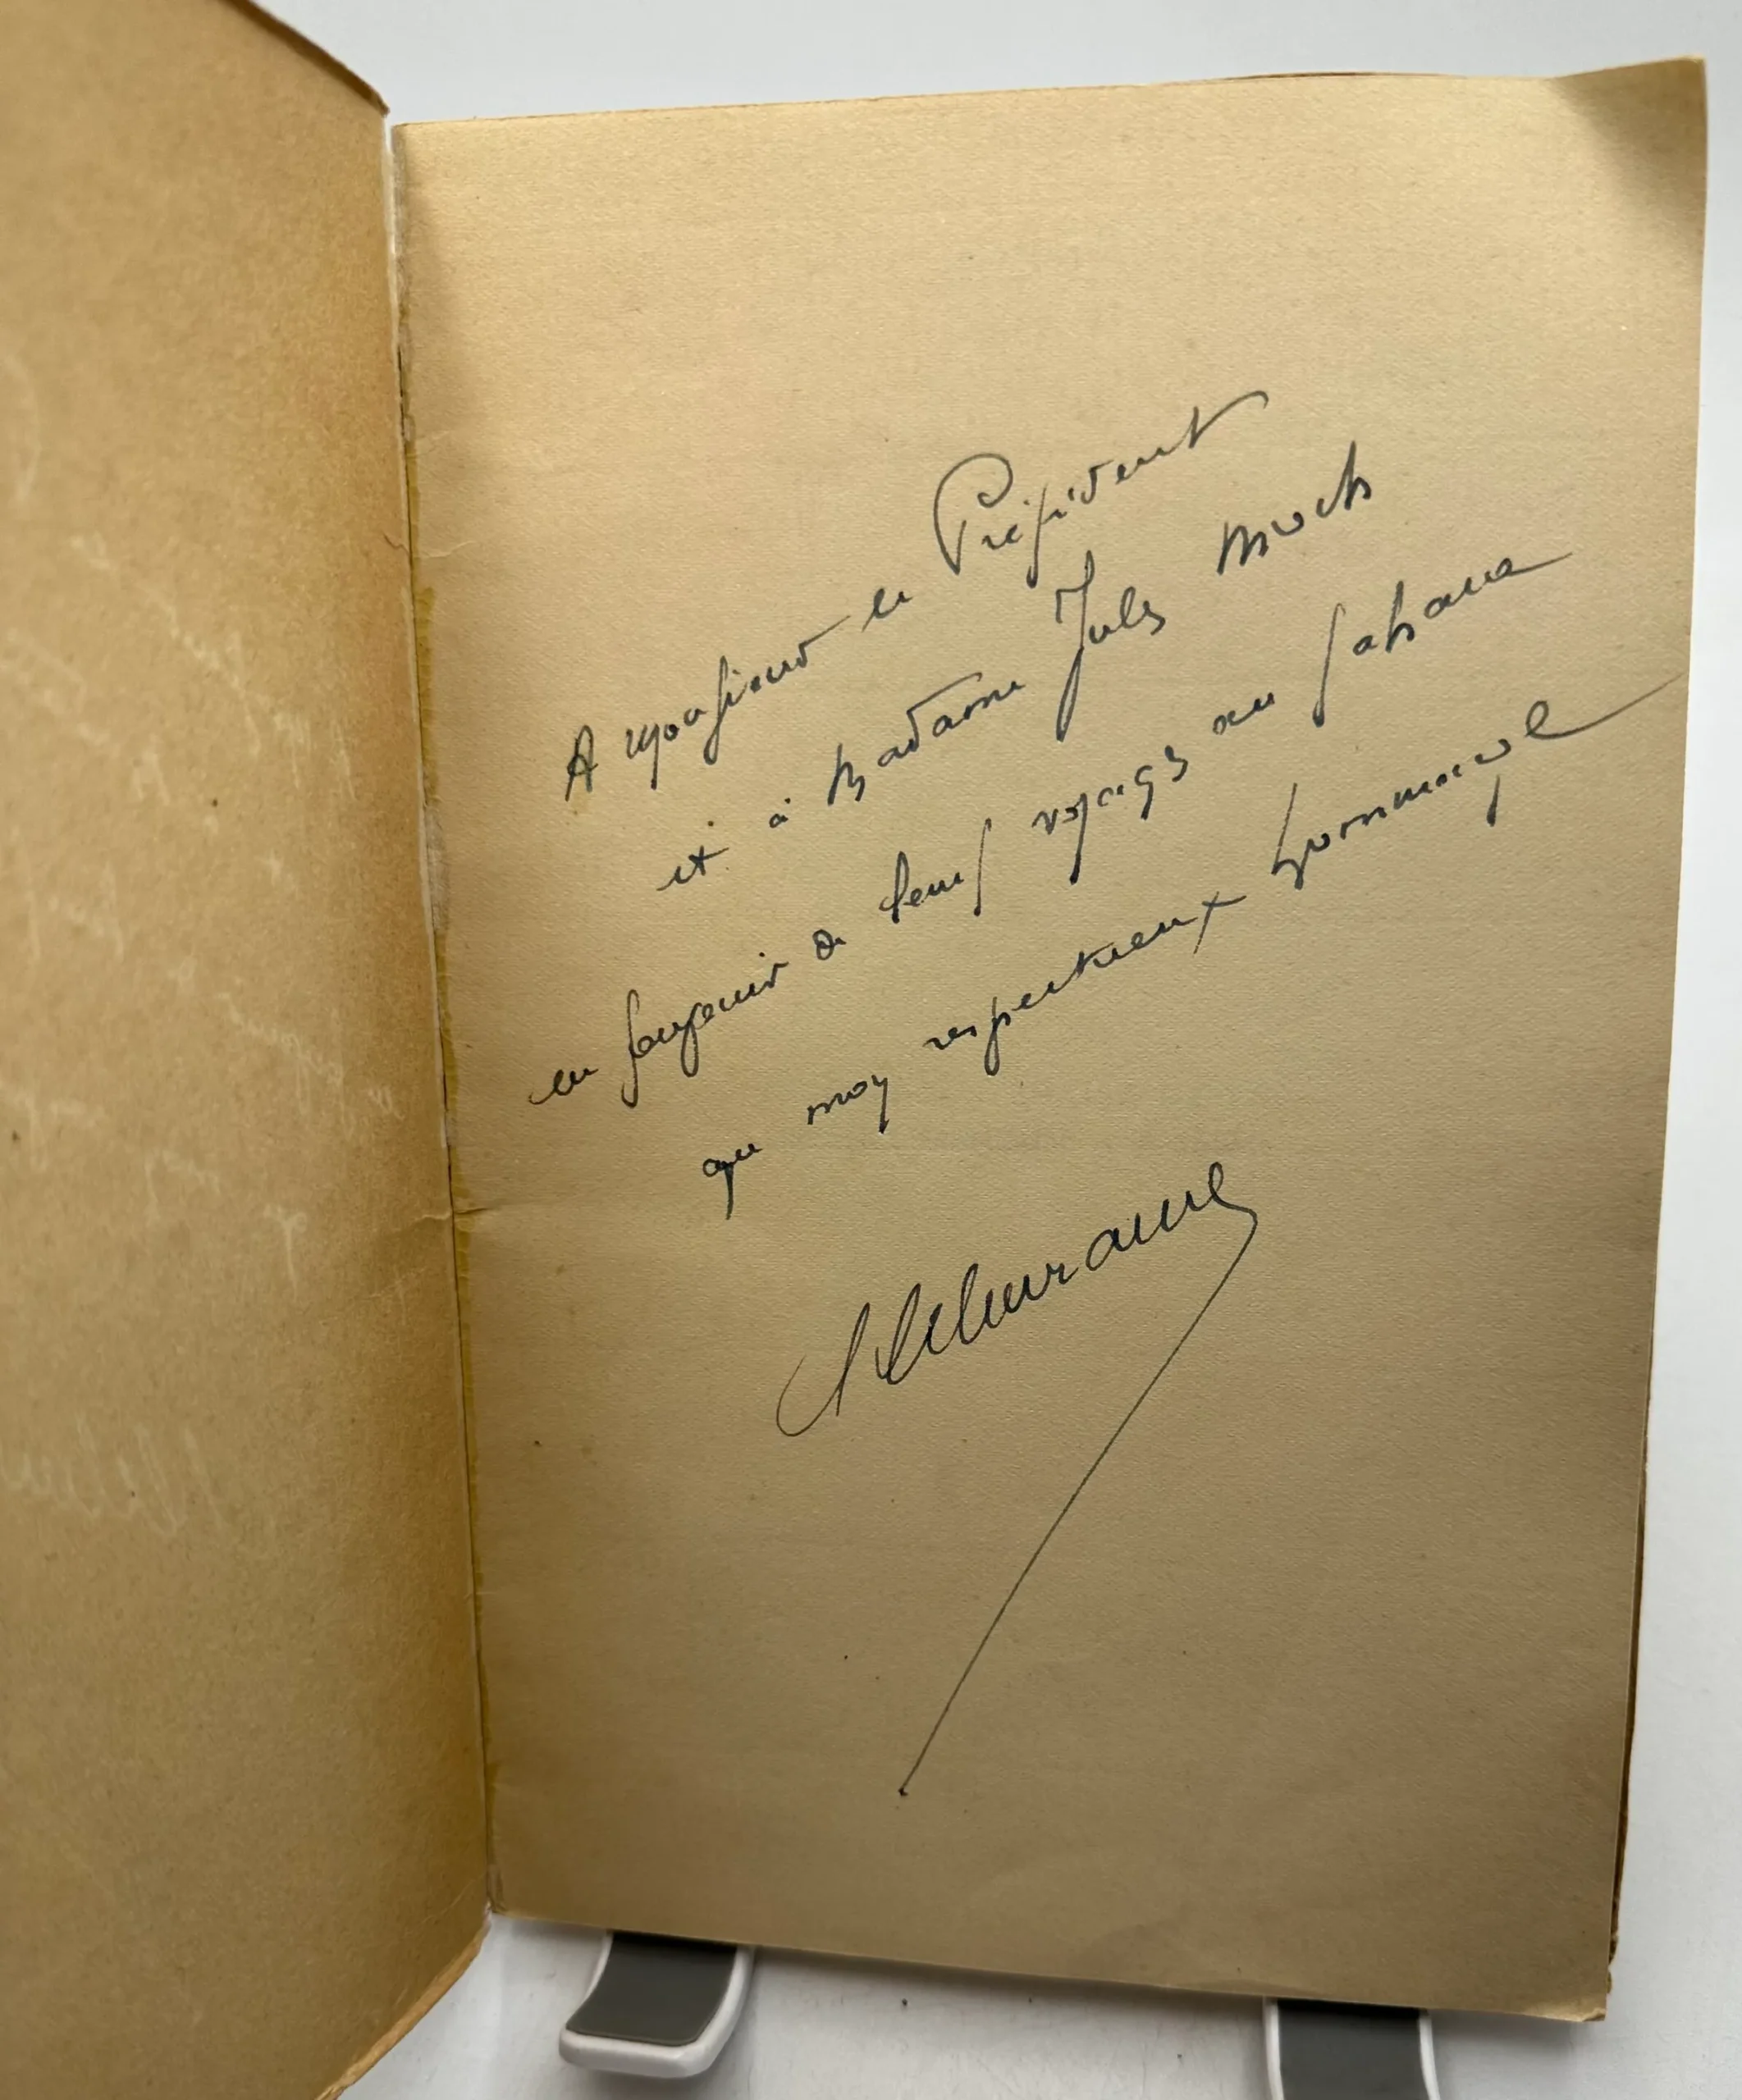 A Monsieur le Président
et à Madame Jules Moch
en souvenir de leurs voyages au Sahara
avec mes respectueux hommages